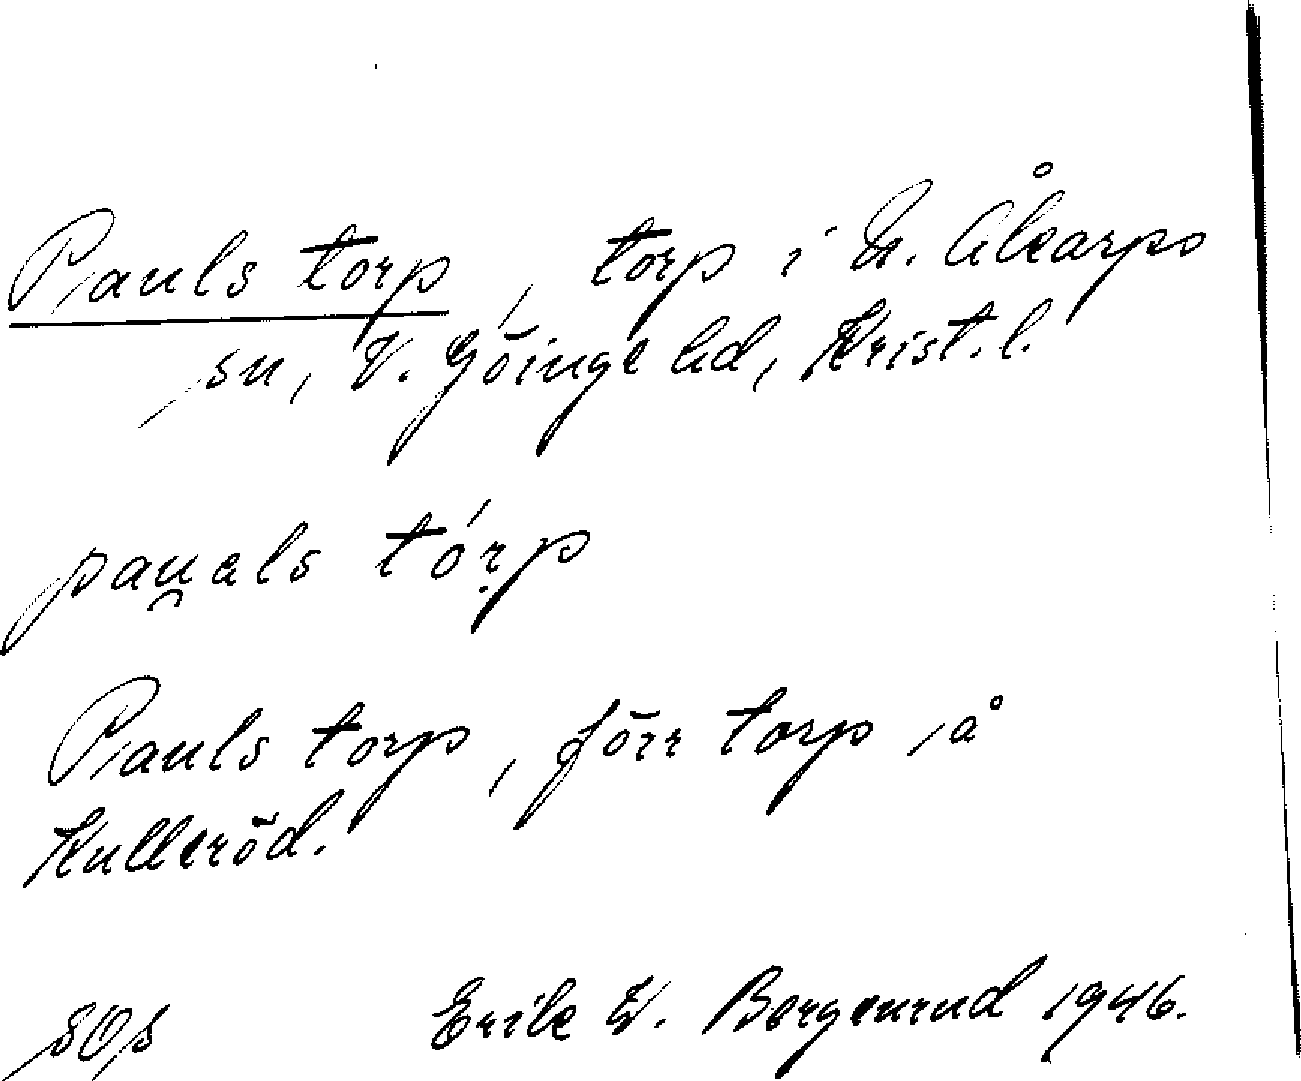 Pauls torp, torp i N. Åkarps
sn, V. Göinge hd, Krist. l.
pau̯əls tórp
Pauls torp, förr torp å
Kulleröd.
SOS Erik W. Bergenrud 1946.